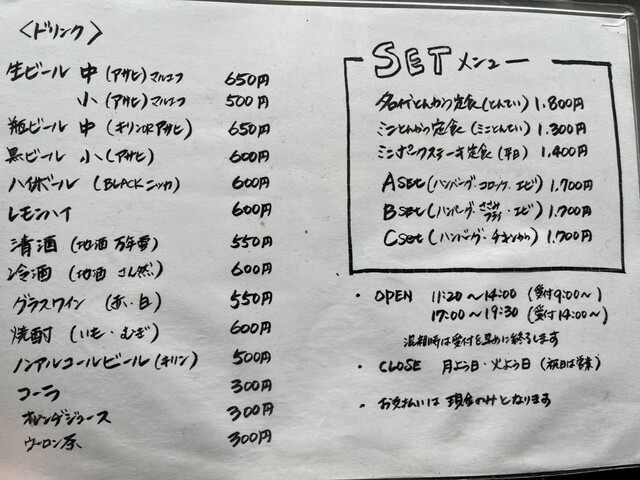 〈ドリンク〉
生ビール 中 (アサヒ) マルエフ 650円
小 (アサヒ) マルエフ 500円
瓶ビール 中 (キリンORアサヒ) 650円
黒ビール 小 (アサヒ) 600円
ハイボール (BLACKニッカ) 600円
レモンハイ 600円
清酒 (地酒 万年雪) 550円
冷酒 (地酒 さん然) 600円
グラスワイン (赤・白) 550円
焼酎 (いも・むぎ) 600円
ノンアルコールビール (キリン) 500円
コーラ 300円
オレンジジュース 300円
ウーロン茶 300円
SETメニュー
名代とんかつ定食 (とんてい) 1.800円
ミニとんかつ定食 (ミニとんてい) 1.300円
ミニポークステーキ定食 (平日) 1.400円
A set (ハンバーグ・コロッケ・エビ) 1.700円
B set (ハンバーグ・ささみフライ・エビ) 1.700円
C set (ハンバーグ・チキンから) 1.700円
・ OPEN 11:20〜14:00 (受付9:00〜)
17:00〜19:30 (受付14:00〜)
混雑時は受付を早めに終了します
・ CLOSE 月よう日・火よう日 (祝日は営業)
・ お支払いは現金のみとなります